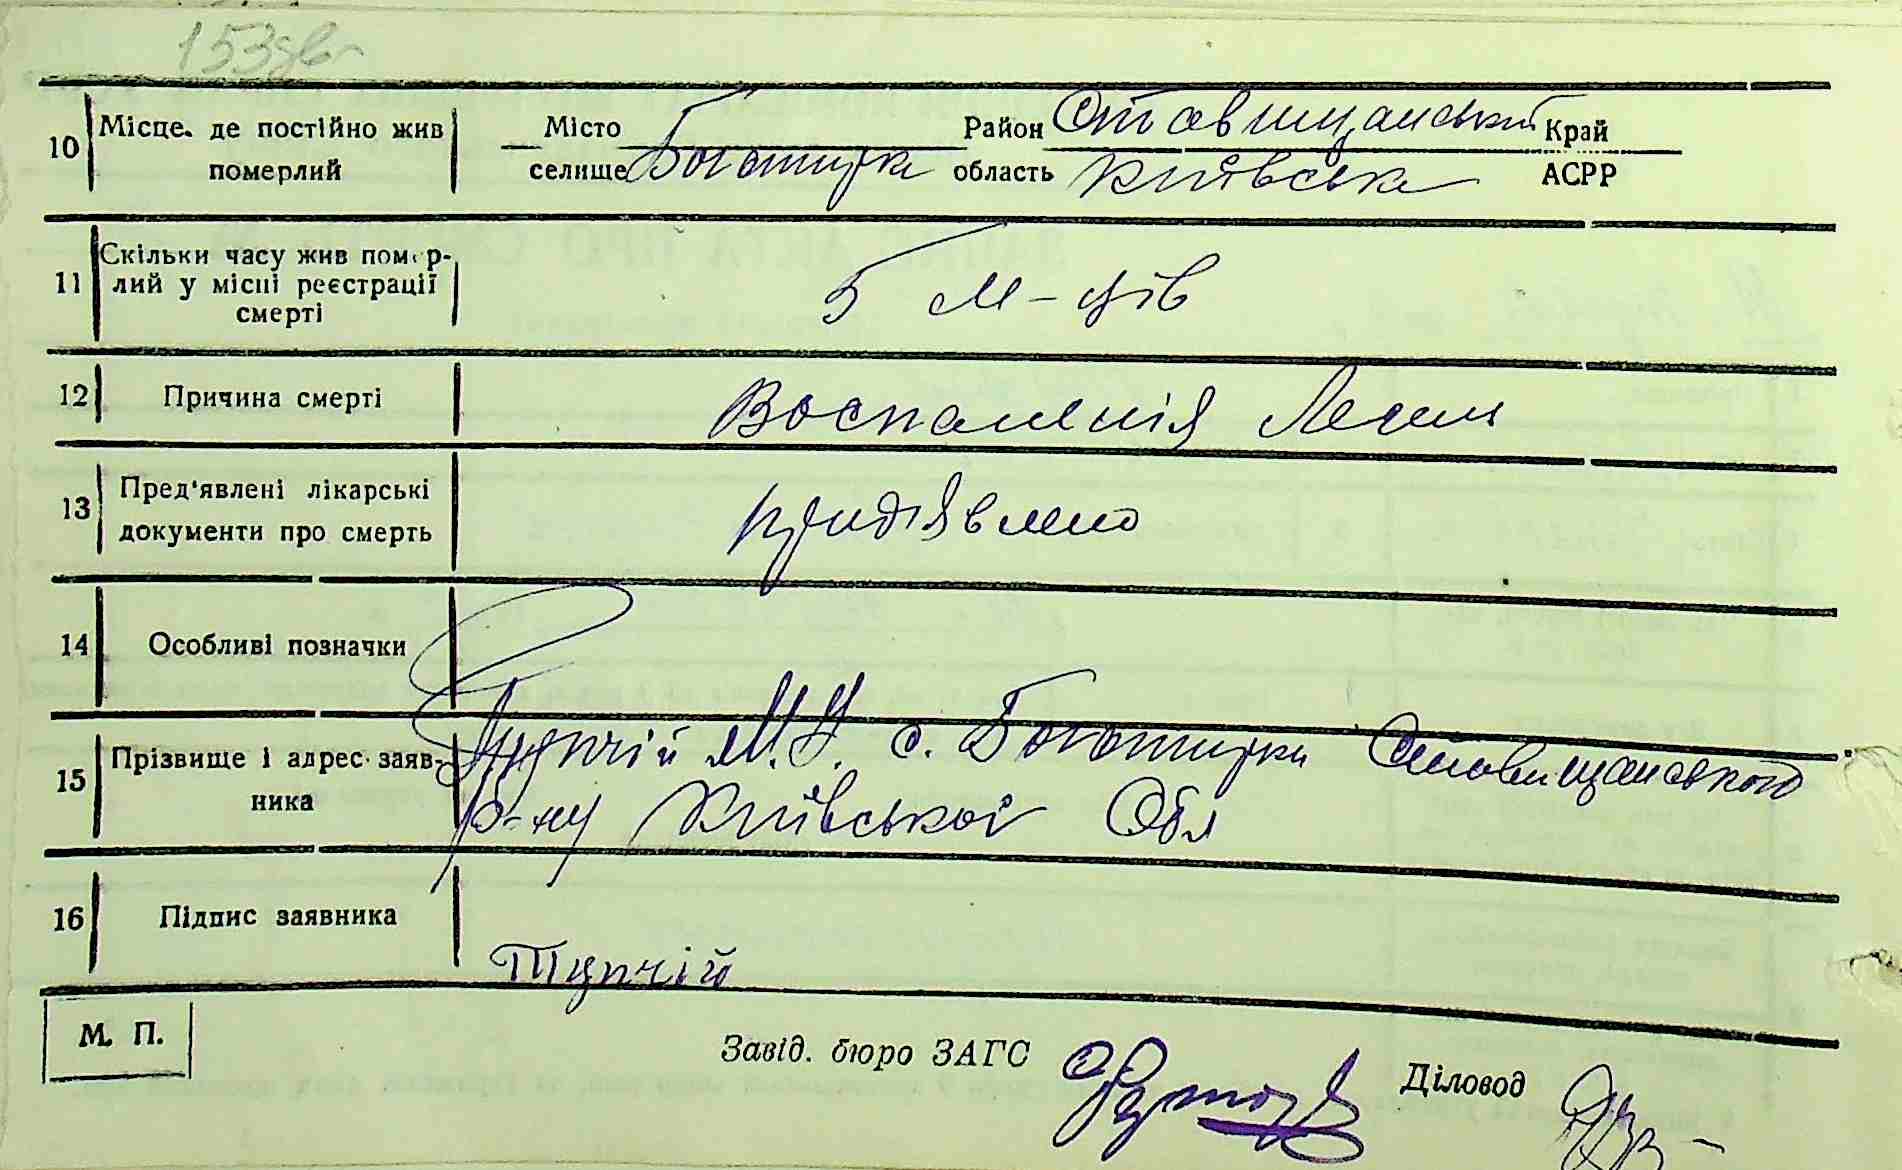 153зв
10 Місце, де постійно жив померлий
Місто
селище Богатирка
Район Ставищанський Край
область Київська АСРР
11 Скільки часу жив помер-
лий у місці реєстрації
смерті
5 м-ців
12 Причина смерті Воспаленія Легень
13 Пред'явлені лікарські
документи про смерть
придіявлено
14 Особливі позначки
15 Прізвище і адрес заяв-
ника
Тупчій М. У. с. Богатирки Ставищанського
р-ну Київської Обл
16 Підпис заявника
Тупчій
М. П.
Завід. бюро ЗАГС
Діловод